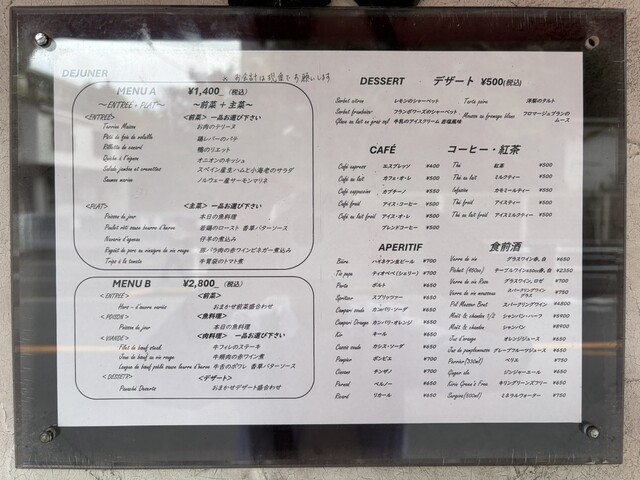 DEJUNER
※ お会計は現金でお願いします
MENU A ¥1,400_ (税込)
～ENTREÉ + PLAT～ ～前菜 + 主菜～
<ENTREÉ> <前菜> 一品お選び下さい
Terrine Maison お肉のテリーヌ
Pâté de foie de volaille 鶏レバーのパテ
Rillette de canard 鴨のリエット
Quiche à l'ognon オニオンのキッシュ
Salade jambon et crevettes スペイン産生ハムと小海老のサラダ
Saumon marine ノルウェー産サーモンマリネ
<PLAT> <主菜> 一品お選び下さい
Poisson de jour 本日の魚料理
Poulet rôti sauce beurre d'herbes 若鶏のロースト 香草バターソース
Navarin d'agneau 仔羊の煮込み
Ragoût de porc au vinaigre de vin rouge 豚バラ肉の赤ワインビネガー煮込み
Tripe à la tomate 牛胃袋のトマト煮
MENU B ¥2,800_ (税込)
<ENTREÉ> <前菜>
Hors-d'œuvre variés おまかせ前菜盛合わせ
<POISON> <魚料理>
Poisson de jour 本日の魚料理
<VIANDE> <肉料理> 一品お選び下さい
Filet de bœuf steak 牛フィレのステーキ
Joue de bœuf au vin rouge 牛頬肉の赤ワイン煮
Langue de bœuf poêlé sauce beurre d'herbes 牛舌のポワレ 香草バターソース
<DESSETR> <デザート>
Desserts おまかせデザート盛合わせ
DESSERT デザート ¥500(税込)
Sorbet citron レモンのシャーベット
Sorbet framboise フランボワーズのシャーベット
牛乳のアイスクリーム 岩塩風味
Tarte poire 洋梨のタルト
Mousse au fromage blanc フロマージュブランのムース
CAFÉ
Café express エスプレッソ ¥400
Café au lait カフェ・オ・レ ¥500
Café cappuccino カプチーノ ¥550
Café froid アイス・コーヒー ¥500
Café au lait froid アイス・オ・レ ¥500
ブレンドコーヒー ¥500
コーヒー・紅茶
Thé 紅茶 ¥500
Thé au lait ミルクティー ¥500
Infusion カモミールティー ¥550
Thé froid アイスティー ¥500
Thé au lait froid アイスミルクティー ¥500
APERITIF
Bière ハイネケン生ビール ¥700
Tio pepe ティオペペ (シェリー) ¥700
Porto ポルト ¥650
Spritzer スプリッツァー ¥650
Campari soda カンパリ・ソーダ ¥650
Campari Orange カンパリ・オレンジ ¥650
Kir キール ¥650
Cassis soda カシス・ソーダ ¥650
Pampier ポンピエ ¥700
Cinzano チンザノ ¥700
Pernod ペルノー ¥650
Ricard リカール ¥650
食前酒
Verre de vin グラスワイン赤, 白 ¥650
Pichet (450cc) テーブルワイン450cc赤, 白 ¥2,350
Verre de vin Rose グラスワイン, ロゼ ¥700
Verre de vin mousseux スパークリングワイングラス ¥750
Pol Messner Brut スパークリングワイン ¥4800
Moët & chandon 1/2 シャンパン・ハーフ ¥5900
Moët & chandon シャンパン ¥8900
Jus d'orange オレンジジュース ¥650
Jus de pamplemousse グレープフルーツジュース ¥650
Perrier(330ml) ペリエ ¥750
Ginger ale ジンジャーエール ¥650
Kirin Green's Free キリングリーンズフリー ¥650
(500ml) ミネラルウォーター ¥750